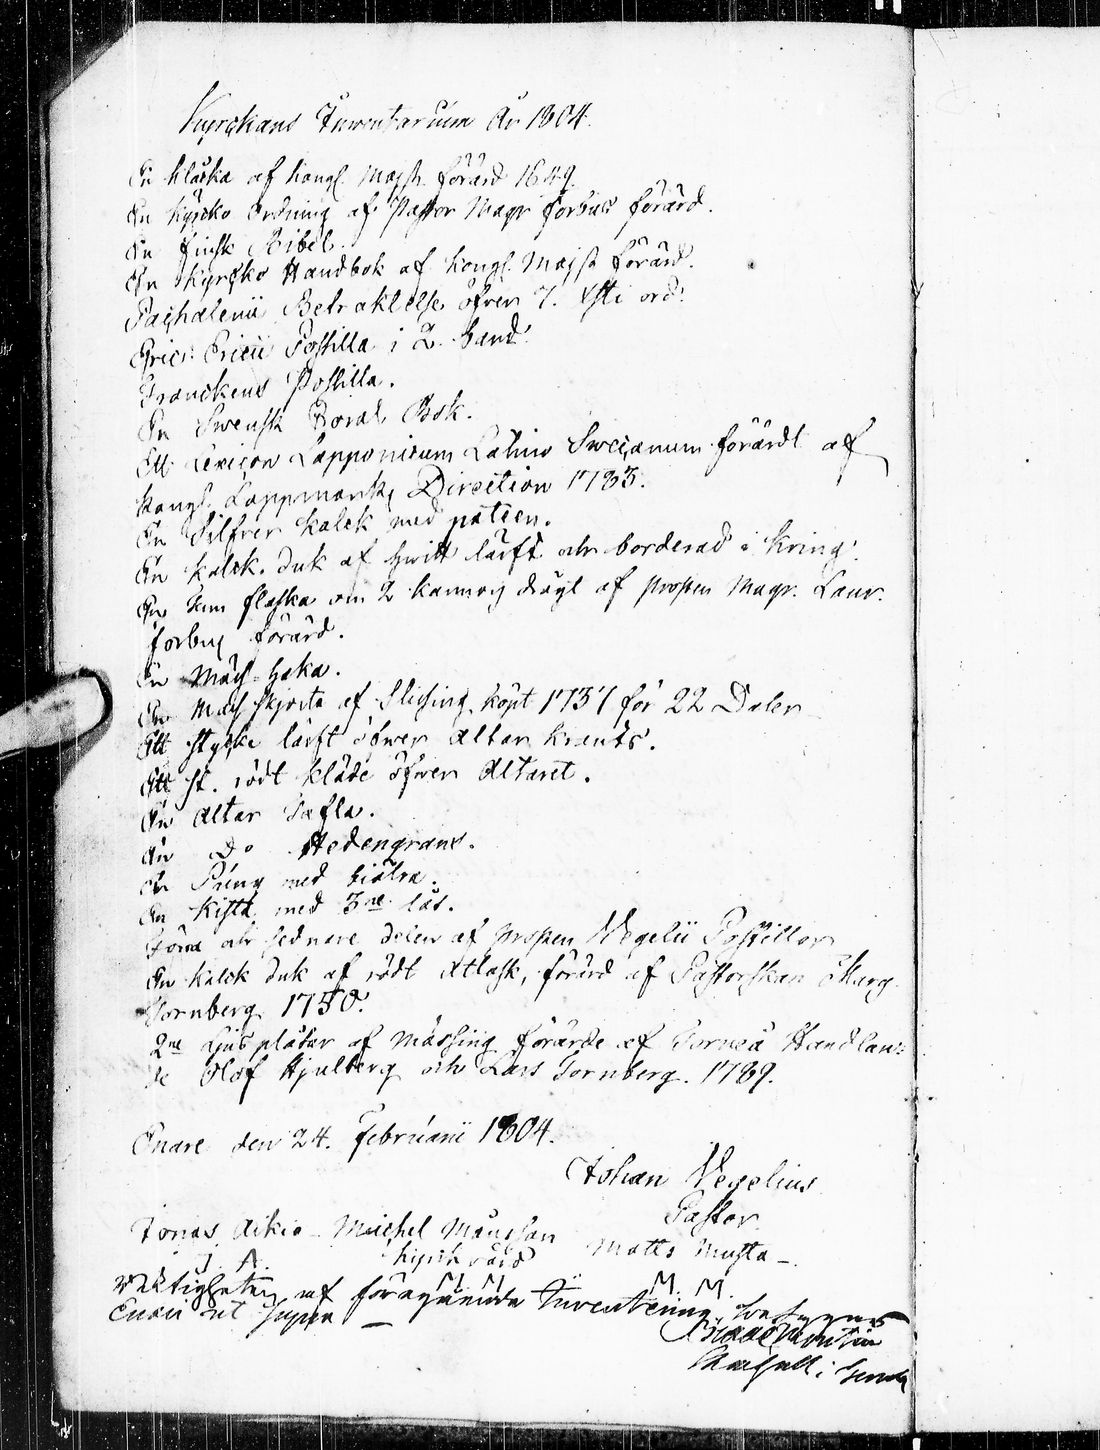 Kyrckans Inventarium År 1804.
En klåcka af Kongl. Majst. förärd 1649.
En Kyrcko Ordning af Pastor Magr. Forbus förärd.
En finsk Bibel.
En Kyrcko Handbok af Kongl. Majst. förärd.
Paschalenii Betraktelse öfver 7. Xsti ord.
Erici Ericii Postilla i 2. band.
Franckens Postilla.
En Swensk Coral Bok.
Ett Lexicon Lapponicum Latino Svecanum förärdt af
Kongl. Lappmarks Direction 1783.
En Silfver kalck med paten.
En kalck duk af hvitt lärft och borderad i kring.
En tenn flaska om 2 kannors drägt af prosten Magr. Laur.
Forbus förärd.
En Mäss-haka.
En Mäss skjorta af Slesing, köpt 1737 för 22 Daler
Ett stycke lärft öfwer Altar krants.
Ett st. rödt kläde öfwer Altaret.
En Altar Tafla.
En Do Hedengrans.
En Pung med biälra.
En Kista med 3ne lås.
Förra och sednare delen af prosten Wegelii Postillor
En kalck duk af rödt Atlask, förärd af Pastorskan Marg.
Tornberg 1750.
2ne ljus plåtar af Mässing förärde af Torneå Handlan-
de Olof Hjulberg och Lars Tornberg. 1789.
Enare den 24. Februarii 1804.
Johan Wegelius
Pastor
Jonas Aikio - Michel Måusson Matts Musta -
J. A. kyrck värd
M M M M
Riktigheten af föregående Inventering, betygar
Enari ut supra —
i